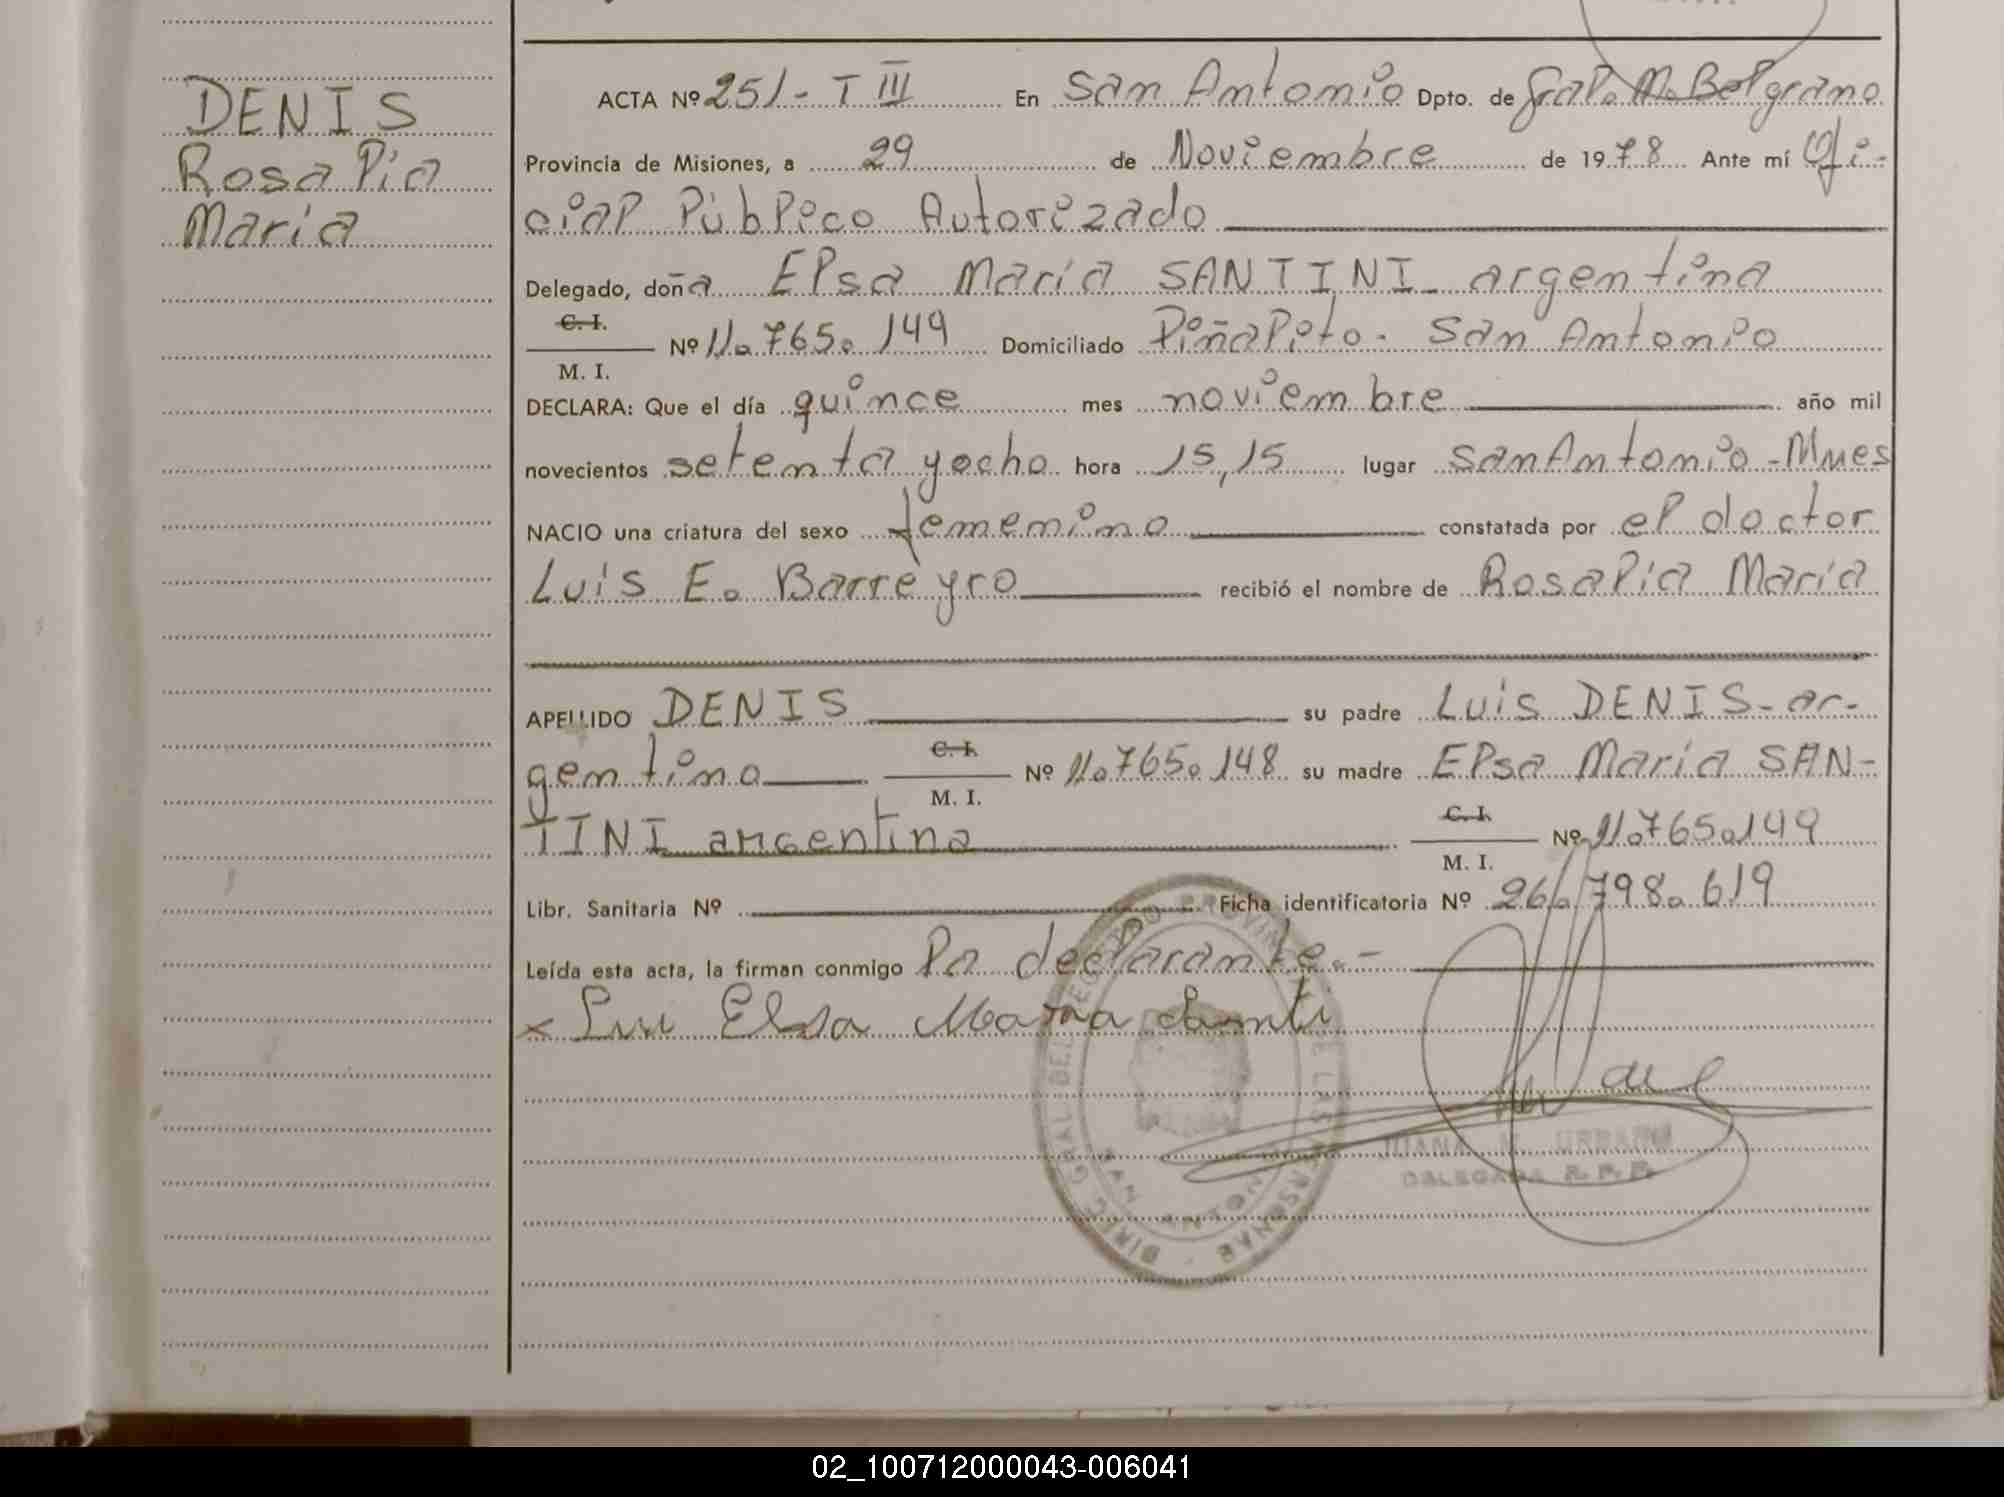 DENIS
Rosa Pía
María
ACTA Nº 251 - T III En San Antonio Dpto. de Gral. M. Belgrano
Provincia de Misiones, a 29 de Noviembre de 1978 Ante mí Ofi-
cial Público Autorizado
Delegado, doña Elsa María SANTINI - argentina
C. I.
Nº 11.765.149 Domiciliado Piñalito - San Antonio
M. I.
DECLARA: Que el día quince mes noviembre año mil
novecientos setenta y ocho hora 15,15 lugar San Antonio - Mnes
NACIO una criatura del sexo femenino constatada por el doctor
Luis E. Barreyro recibió el nombre de Rosa Pía María
APELLIDO DENIS su padre Luis DENIS - ar-
C. I.
gentino Nº 11.765.148 su madre Elsa María SAN-
M. I.
TINI argentina
C. I.
Nº 11.765.149
M. I.
Libr. Sanitaria Nº Ficha identificatoria Nº 26.798.619
Leída esta acta, la firman conmigo la declarante.-
x Elsa Maria Santi
DIREC. GRAL. DEL REGISTRO PROVINC. DE LAS PERSONAS
SAN ANTONIO
JUANA M. URBANO
DELEGADA R. P. P.
02_100712000043-006041